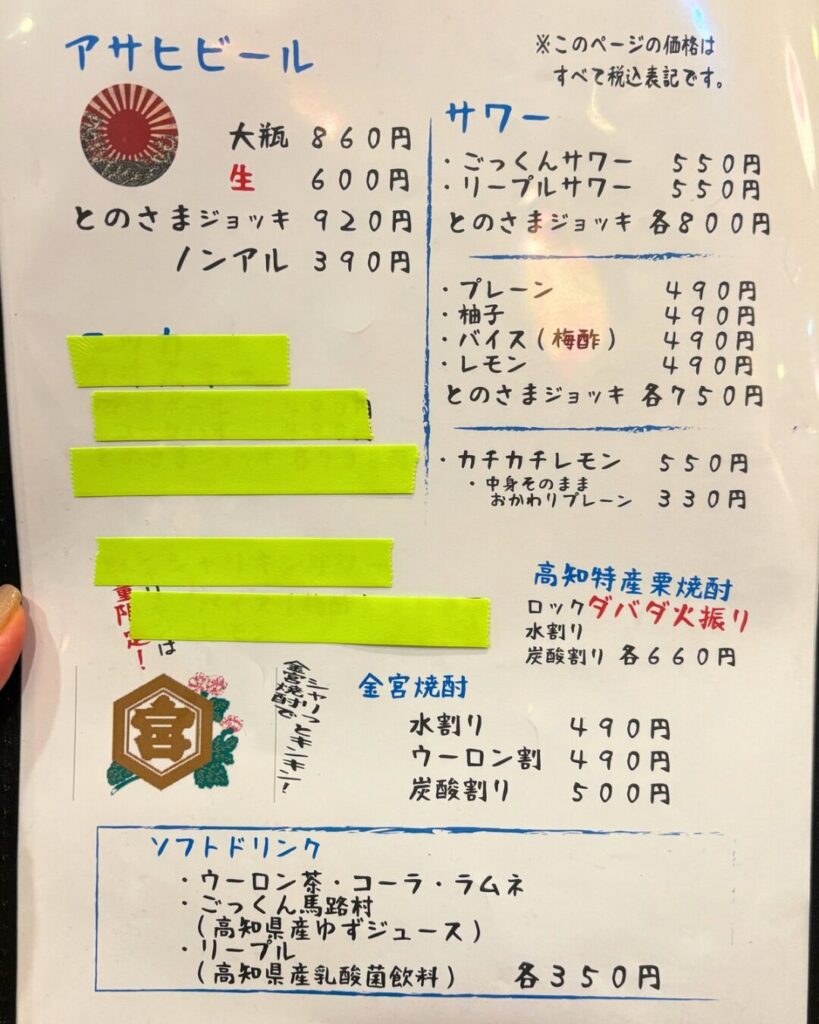 アサヒビール
大瓶 860円
生 600円
とのさまジョッキ 920円
ノンアル 390円
※このページの価格は
すべて税込表記です。
サワー
・ごっくんサワー 550円
・リープルサワー 550円
とのさまジョッキ 各800円
・プレーン 490円
・柚子 490円
・バイス(梅酢) 490円
・レモン 490円
とのさまジョッキ 各750円
・カチカチレモン 550円
・中身そのまま
おかわりプレーン 330円
高知特産栗焼酎
ロック ダバダ火振り
水割り
炭酸割り 各660円
は
量限定!
宮
金宮焼酎で
シャリっとキンキン!
金宮焼酎
水割り 490円
ウーロン割 490円
炭酸割り 500円
ソフトドリンク
・ウーロン茶・コーラ・ラムネ
・ごっくん馬路村
(高知県産ゆずジュース)
・リープル
(高知県産乳酸菌飲料) 各350円